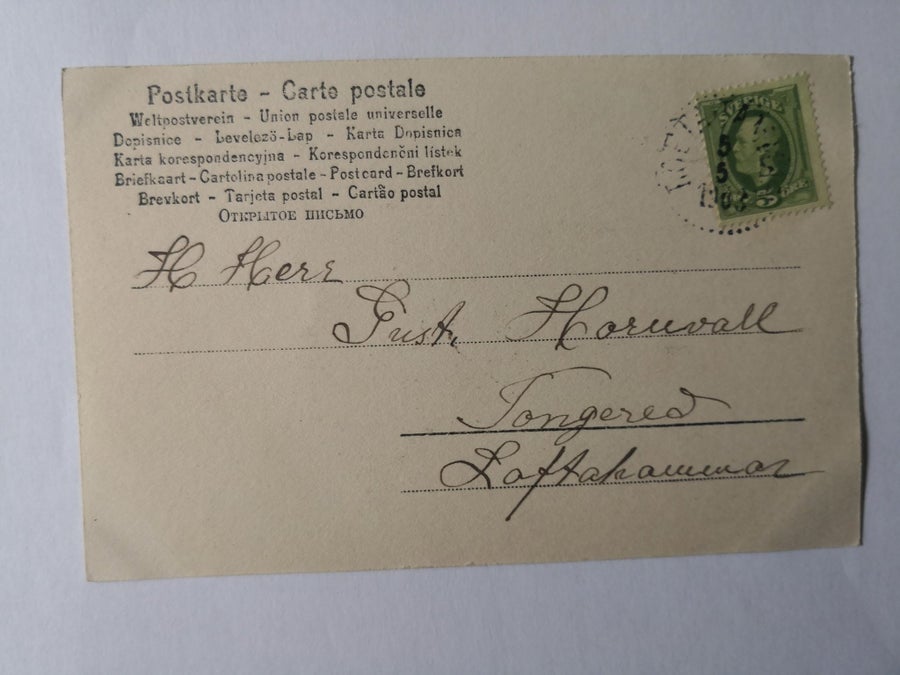 Postkarte - Carte postale
Weltpostverein - Union postale universelle
Dopisnice - Levelező-Lap - Karta Dopisnica
Karta korespondencyjna - Korespondenční lístek
Briefkaart - Cartolina postale - Postcard - Brefkort
Brevkort - Tarjeta postal - Cartão postal
Открытое письмо
SVERIGE
5
5
1903
5 ÖRE
H Herr
Gust. Hornvall
Tongered
Loftahammar